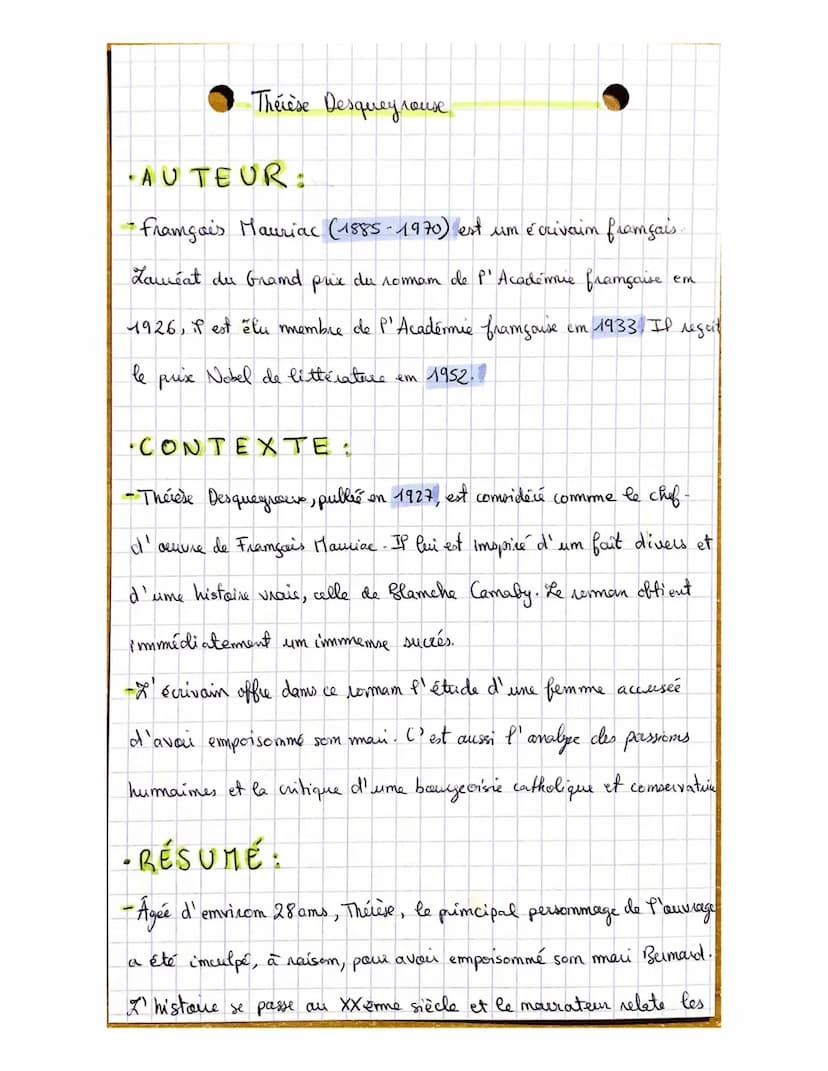 Thérèse Desqueyroux
• AUTEUR :
- François Mauriac (1885-1970) est un écrivain français.
Lauréat du Grand prix du roman de l'Académie française en
1926, il est élu membre de l'Académie française en 1933. Il reçoit
le prix Nobel de littérature en 1952.
• CONTEXTE :
- Thérèse Desqueyroux, publié en 1927, est considéré comme le chef-
d'œuvre de François Mauriac. Il lui est inspiré d'un fait divers et
d'une histoire vraie, celle de Blanche Canaby. Le roman obtient
immédiatement un immense succès.
- L'écrivain offre dans ce roman l'étude d'une femme accusée
d'avoir empoisonné son mari. C'est aussi l'analyse des passions
humaines et la critique d'une bourgeoisie catholique et conservatrice
• RÉSUMÉ :
- Âgée d'environ 28 ans, Thérèse, le principal personnage de l'ouvrage
a été inculpé, à raison, pour avoir empoisonné son mari Bernard.
L'histoire se passe au XXème siècle et le narrateur relate les